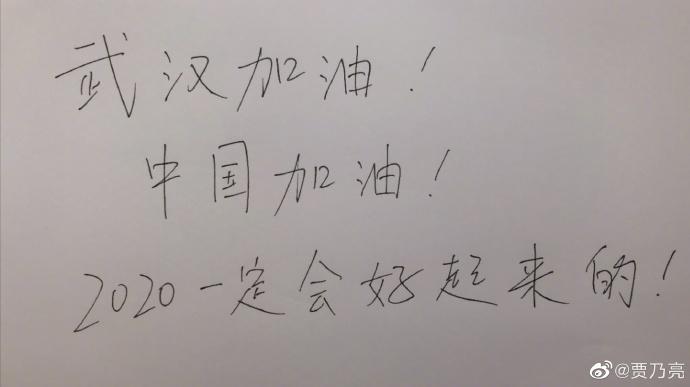 武汉加油！
中国加油！
2020一定会好起来的！
@贾乃亮